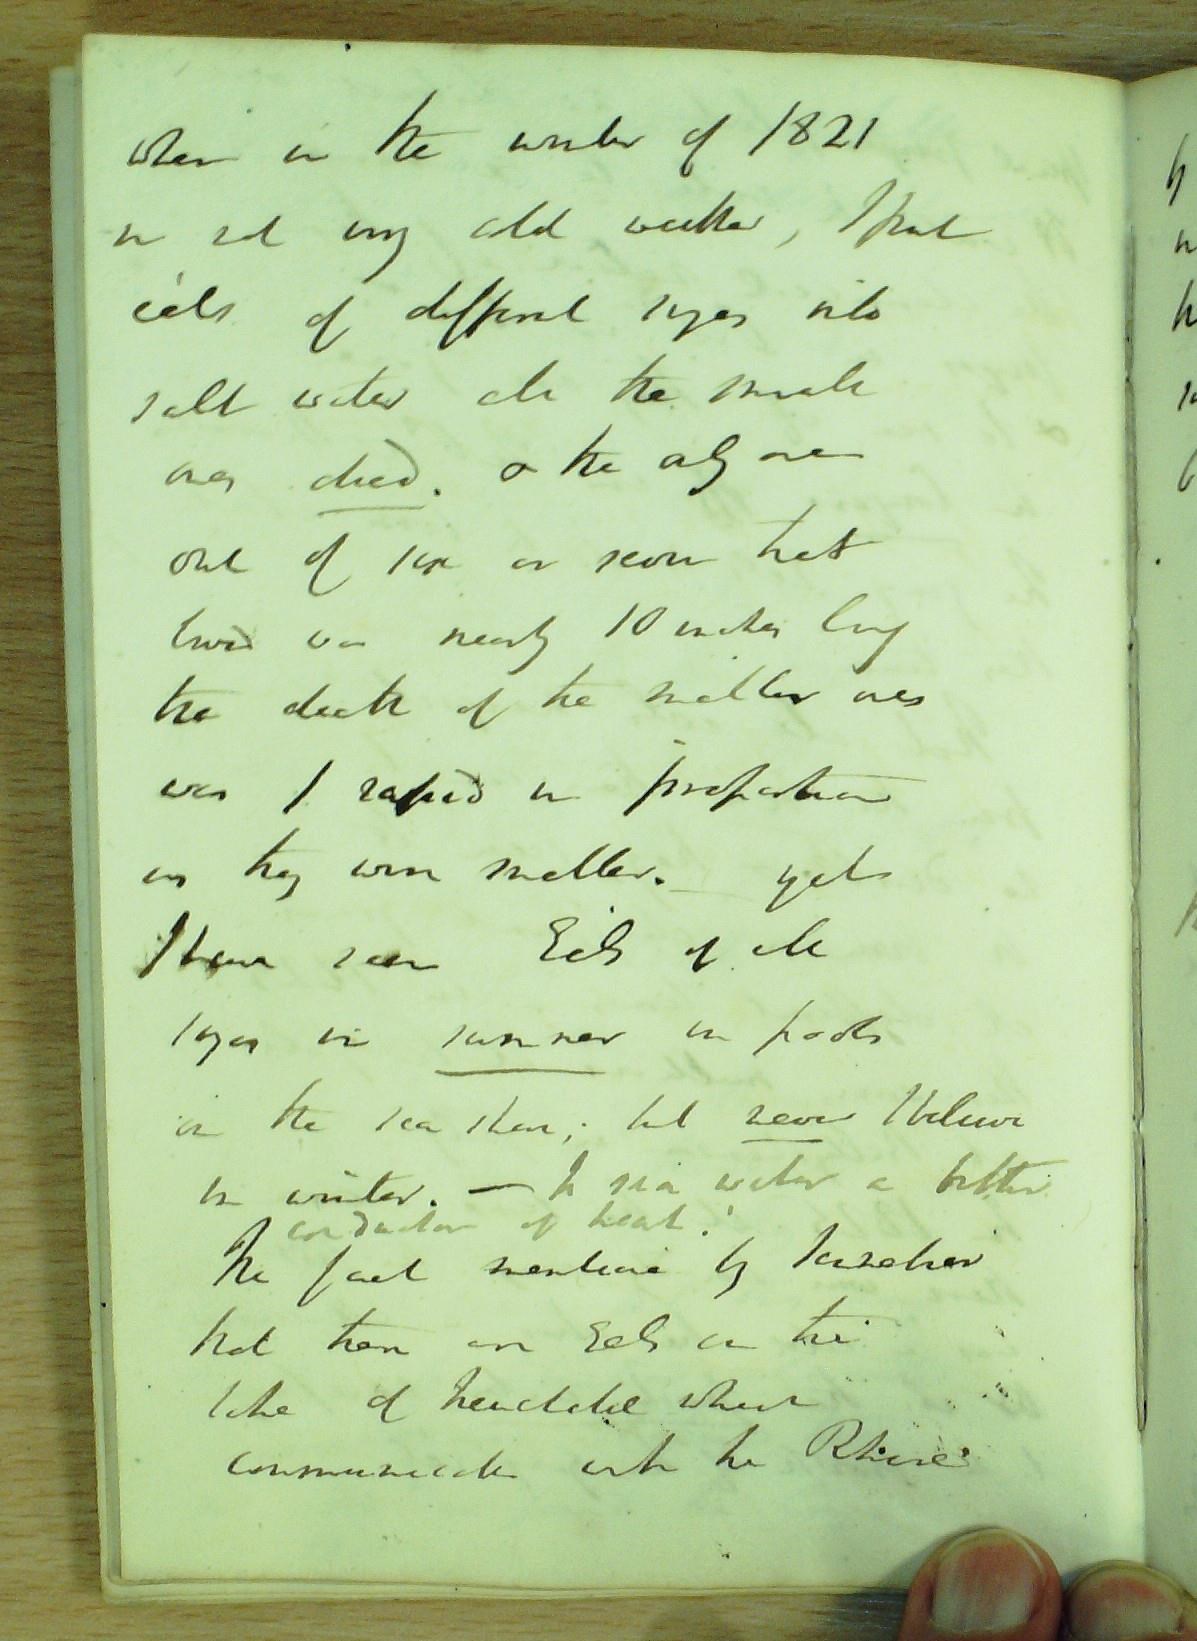 when in the winter of 1821
in not very cold weather, I put
eels of different sizes into
salt water all the small
ones died. & the only one
out of six or seven that
lived was nearly 10 inches long
the death of the smaller ones
was / rapid in proportion
as they were smaller. yet
I have seen Eels of all
sizes in summer in pools
on the sea shore; but never I believe
in winter. — Is sea water a better
conductor of heat?
The fact mentioned by
that there are Eels in the
lake of Neuchatel which
communicates with the Rhine